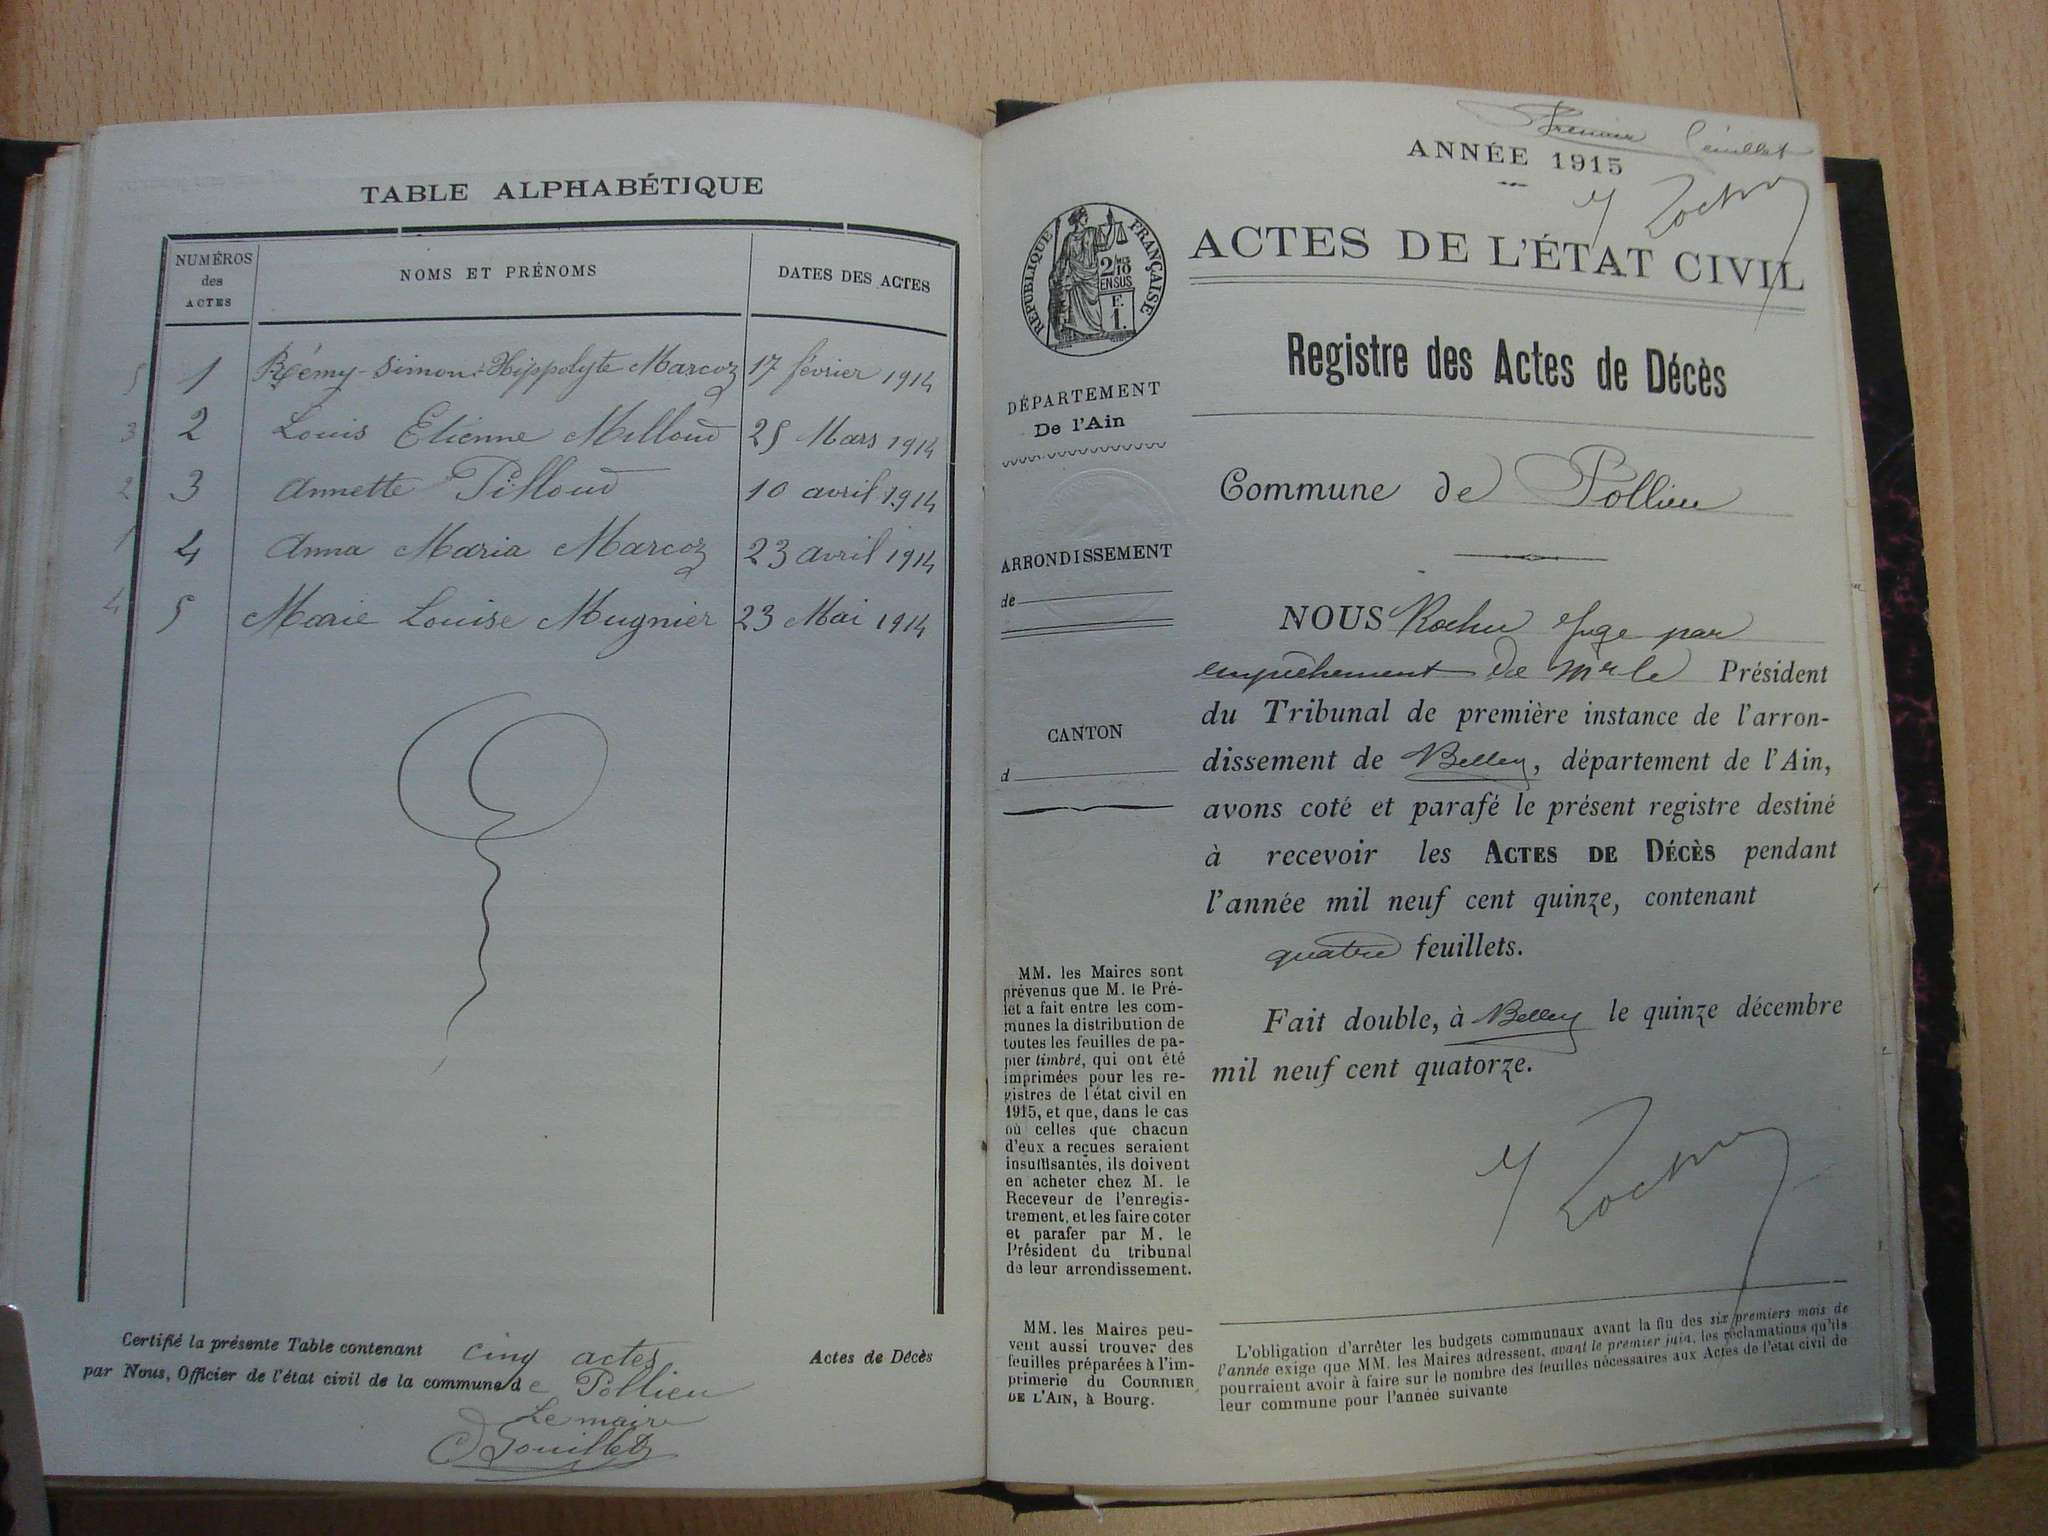 TABLE ALPHABÉTIQUE
NUMÉROS des ACTES
NOMS ET PRÉNOMS
DATES DES ACTES
5 1 Rémy-Simon-Hippolyte Marcoz 17 février 1914
3 2 Louis Etienne Milloud 25 Mars 1914
2 3 Annette Pilloud 10 avril 1914
1 4 Anna Maria Marcoz 23 avril 1914
4 5 Marie Louise Mugnier 23 Mai 1914
Certifié la présente Table contenant cinq actes
Actes de Décès
par Nous, Officier de l'état civil de la commune de Pollieu
Le maire
Premier feuillet
ANNÉE 1915
RÉPUBLIQUE FRANÇAISE
2/10 EN SUS
F.
1.
ACTES DE L'ÉTAT CIVIL
Registre des Actes de Décès
DÉPARTEMENT
De l'Ain
Commune de Pollieu
ARRONDISSEMENT
de
CANTON
d
NOUS Juge par
empêchement de Mr le Président
du Tribunal de première instance de l'arron-
dissement de Belley, département de l'Ain,
avons coté et parafé le présent registre destiné
à recevoir les ACTES DE DÉCÈS pendant
l'année mil neuf cent quinze, contenant
quatre feuillets.
Fait double, à Belley le quinze décembre
mil neuf cent quatorze.
MM. les Maires sont
prévenus que M. le Pré-
fet a fait entre les com-
munes la distribution de
toutes les feuilles de pa-
pier timbré, qui ont été
imprimées pour les re-
gistres de l'état civil en
1915, et que, dans le cas
où celles que chacun
d'eux a reçues seraient
insuffisantes, ils doivent
en acheter chez M. le
Receveur de l'enregis-
trement, et les faire coter
et parafer par M. le
Président du tribunal
de leur arrondissement.
MM. les Maires peu-
vent aussi trouver des
feuilles préparées à l'im-
primerie du COURRIER
DE L'AIN, à Bourg.
L'obligation d'arrêter les budgets communaux avant la fin des six premiers mois de
l'année exige que MM. les Maires adressent, avant le premier juin, les réclamations qu'ils
pourraient avoir à faire sur le nombre des feuilles nécessaires aux Actes de l'état civil de
leur commune pour l'année suivante